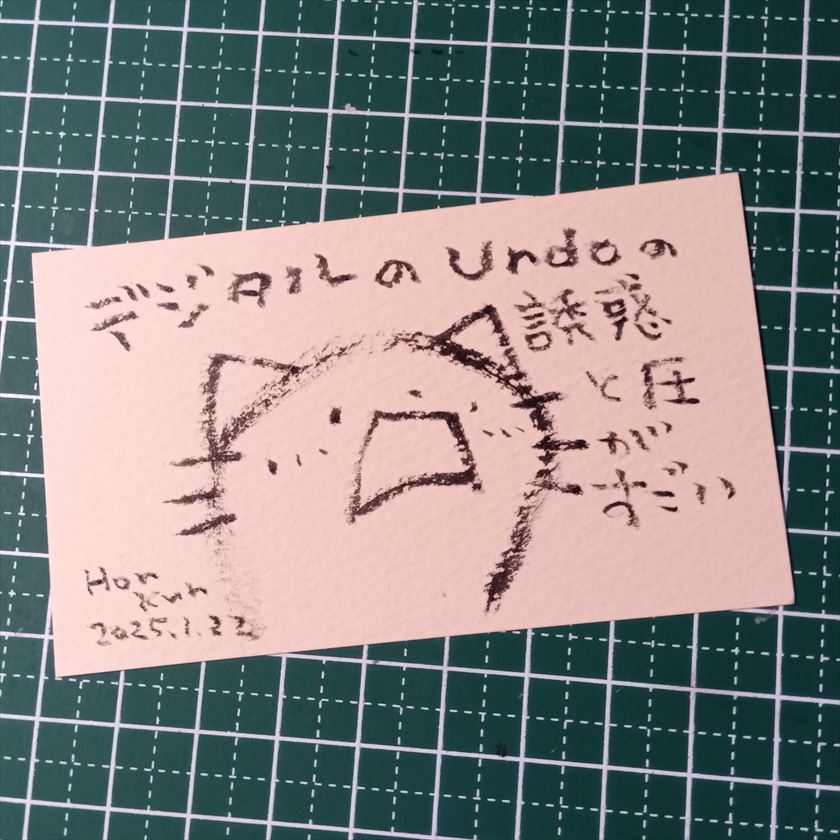 デジタルのUndoの
誘惑
と圧
が
すごい
Hon
xun
2025.1.22